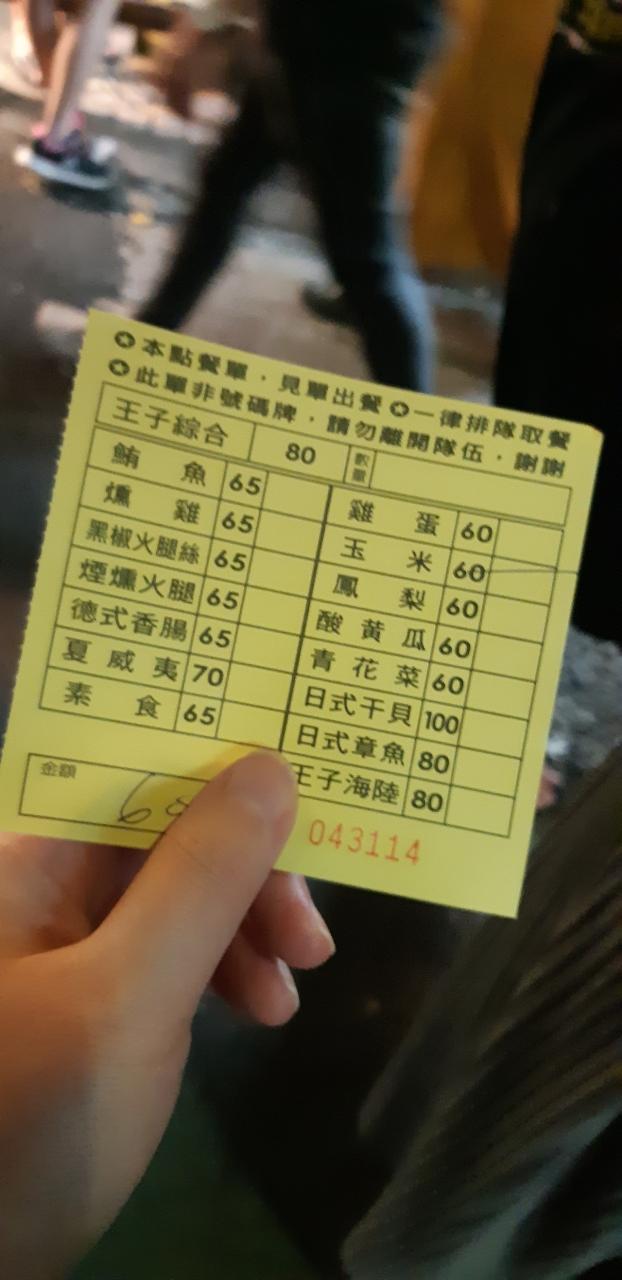 ✪本點餐單，見單出餐✪一律排隊取餐
✪此單非號碼牌，請勿離開隊伍，謝謝
王子綜合 80 數量
鮪魚 65
燻雞 65
黑椒火腿絲 65
煙燻火腿 65
德式香腸 65
夏威夷 70
素食 65
雞蛋 60
玉米 60
鳳梨 60
酸黃瓜 60
青花菜 60
日式干貝 100
日式章魚 80
王子海陸 80
金額
043114